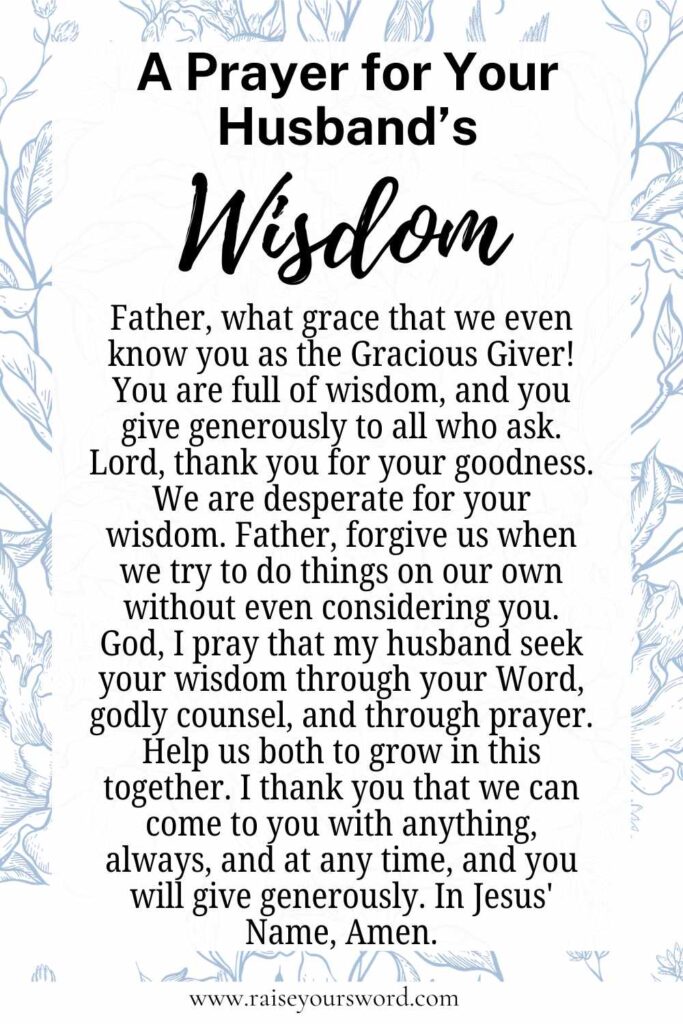 A Prayer for Your
Husband’s
Wisdom
Father, what grace that we even
know you as the Gracious Giver!
You are full of wisdom, and you
give generously to all who ask.
Lord, thank you for your goodness.
We are desperate for your
wisdom. Father, forgive us when
we try to do things on our own
without even considering you.
God, I pray that my husband seek
your wisdom through your Word,
godly counsel, and through prayer.
Help us both to grow in this
together. I thank you that we can
come to you with anything,
always, and at any time, and you
will give generously. In Jesus'
Name, Amen.
www.raiseyoursword.com